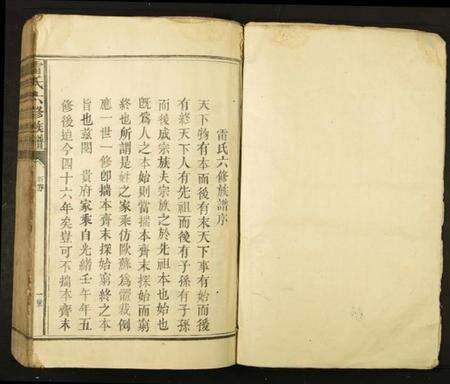 雷氏六修族譜序
天下物有本而後有末天下事有始而後
有終天下人有先祖而後有子孫有子孫
而後成宗族夫宗族之於先祖本也始也
既爲人之本始則當揣本齊末探始而窮
終也所謂是姓之家乘仿歐蘇爲體裁例
應一世一修卽揣本齊末探始窮終之本
旨也茲閱貴府家乘自光緒壬午年五
修後迨今四十六年矣豈可不揣本齊末
雷氏六修族譜